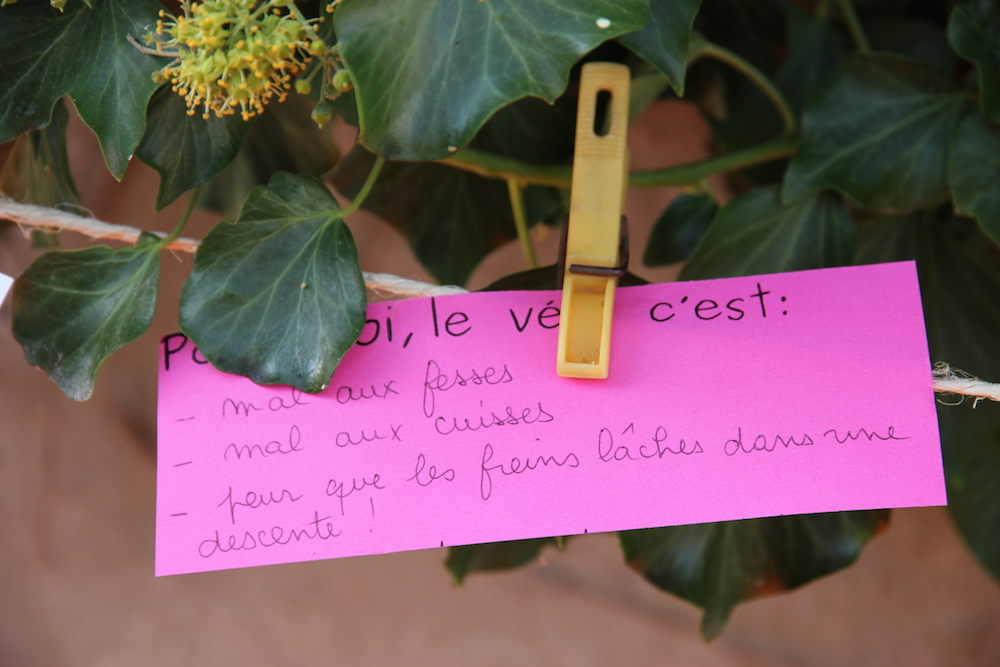 Pour moi, le vélo c'est:
- mal aux fesses
- mal aux cuisses
- peur que les freins lâches dans une
descente !